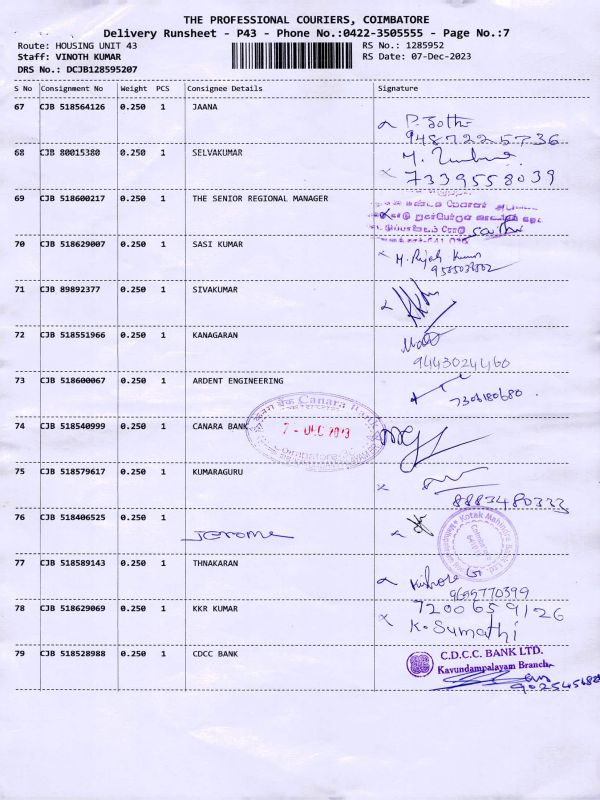 THE PROFESSIONAL COURIERS, COIMBATORE
Delivery Runsheet - P43 - Phone No.:0422-3505555 - Page No.:7
Route: HOUSING UNIT 43 RS No.: 1285952
Staff: VINOTH KUMAR RS Date: 07-Dec-2023
DRS No.: DCJCB128595207
S No Consignment No Weight PCS Consignee Details Signature
67 CJB 518564126 0.250 1 JAANA
9487225736
68 CJB 80015380 0.250 1 SELVAKUMAR
7339558039
69 CJB 518600217 0.250 1 THE SENIOR REGIONAL MANAGER
70 CJB 518629007 0.250 1 SASI KUMAR
71 CJB 89892377 0.250 1 SIVAKUMAR
72 CJB 518551966 0.250 1 KANAGARAN
9443024460
73 CJB 518600067 0.250 1 ARDENT ENGINEERING
7306180680
74 CJB 518540999 0.250 1 CANARA BANK
Canara Bank
7 - DEC 2023
75 CJB 518579617 0.250 1 KUMARAGURU
8883480333
76 CJB 518406525 0.250 1
Jerome
Kotak Mahindra Bank Ltd
Coimbatore
77 CJB 518589143 0.250 1 THNAKARAN
Kishore G
9655770399
78 CJB 518629069 0.250 1 KKR KUMAR
7200659126
K. Sumathi
79 CJB 518528988 0.250 1 CDCC BANK
C.D.C.C. BANK LTD.
Kavundampalayam Branch